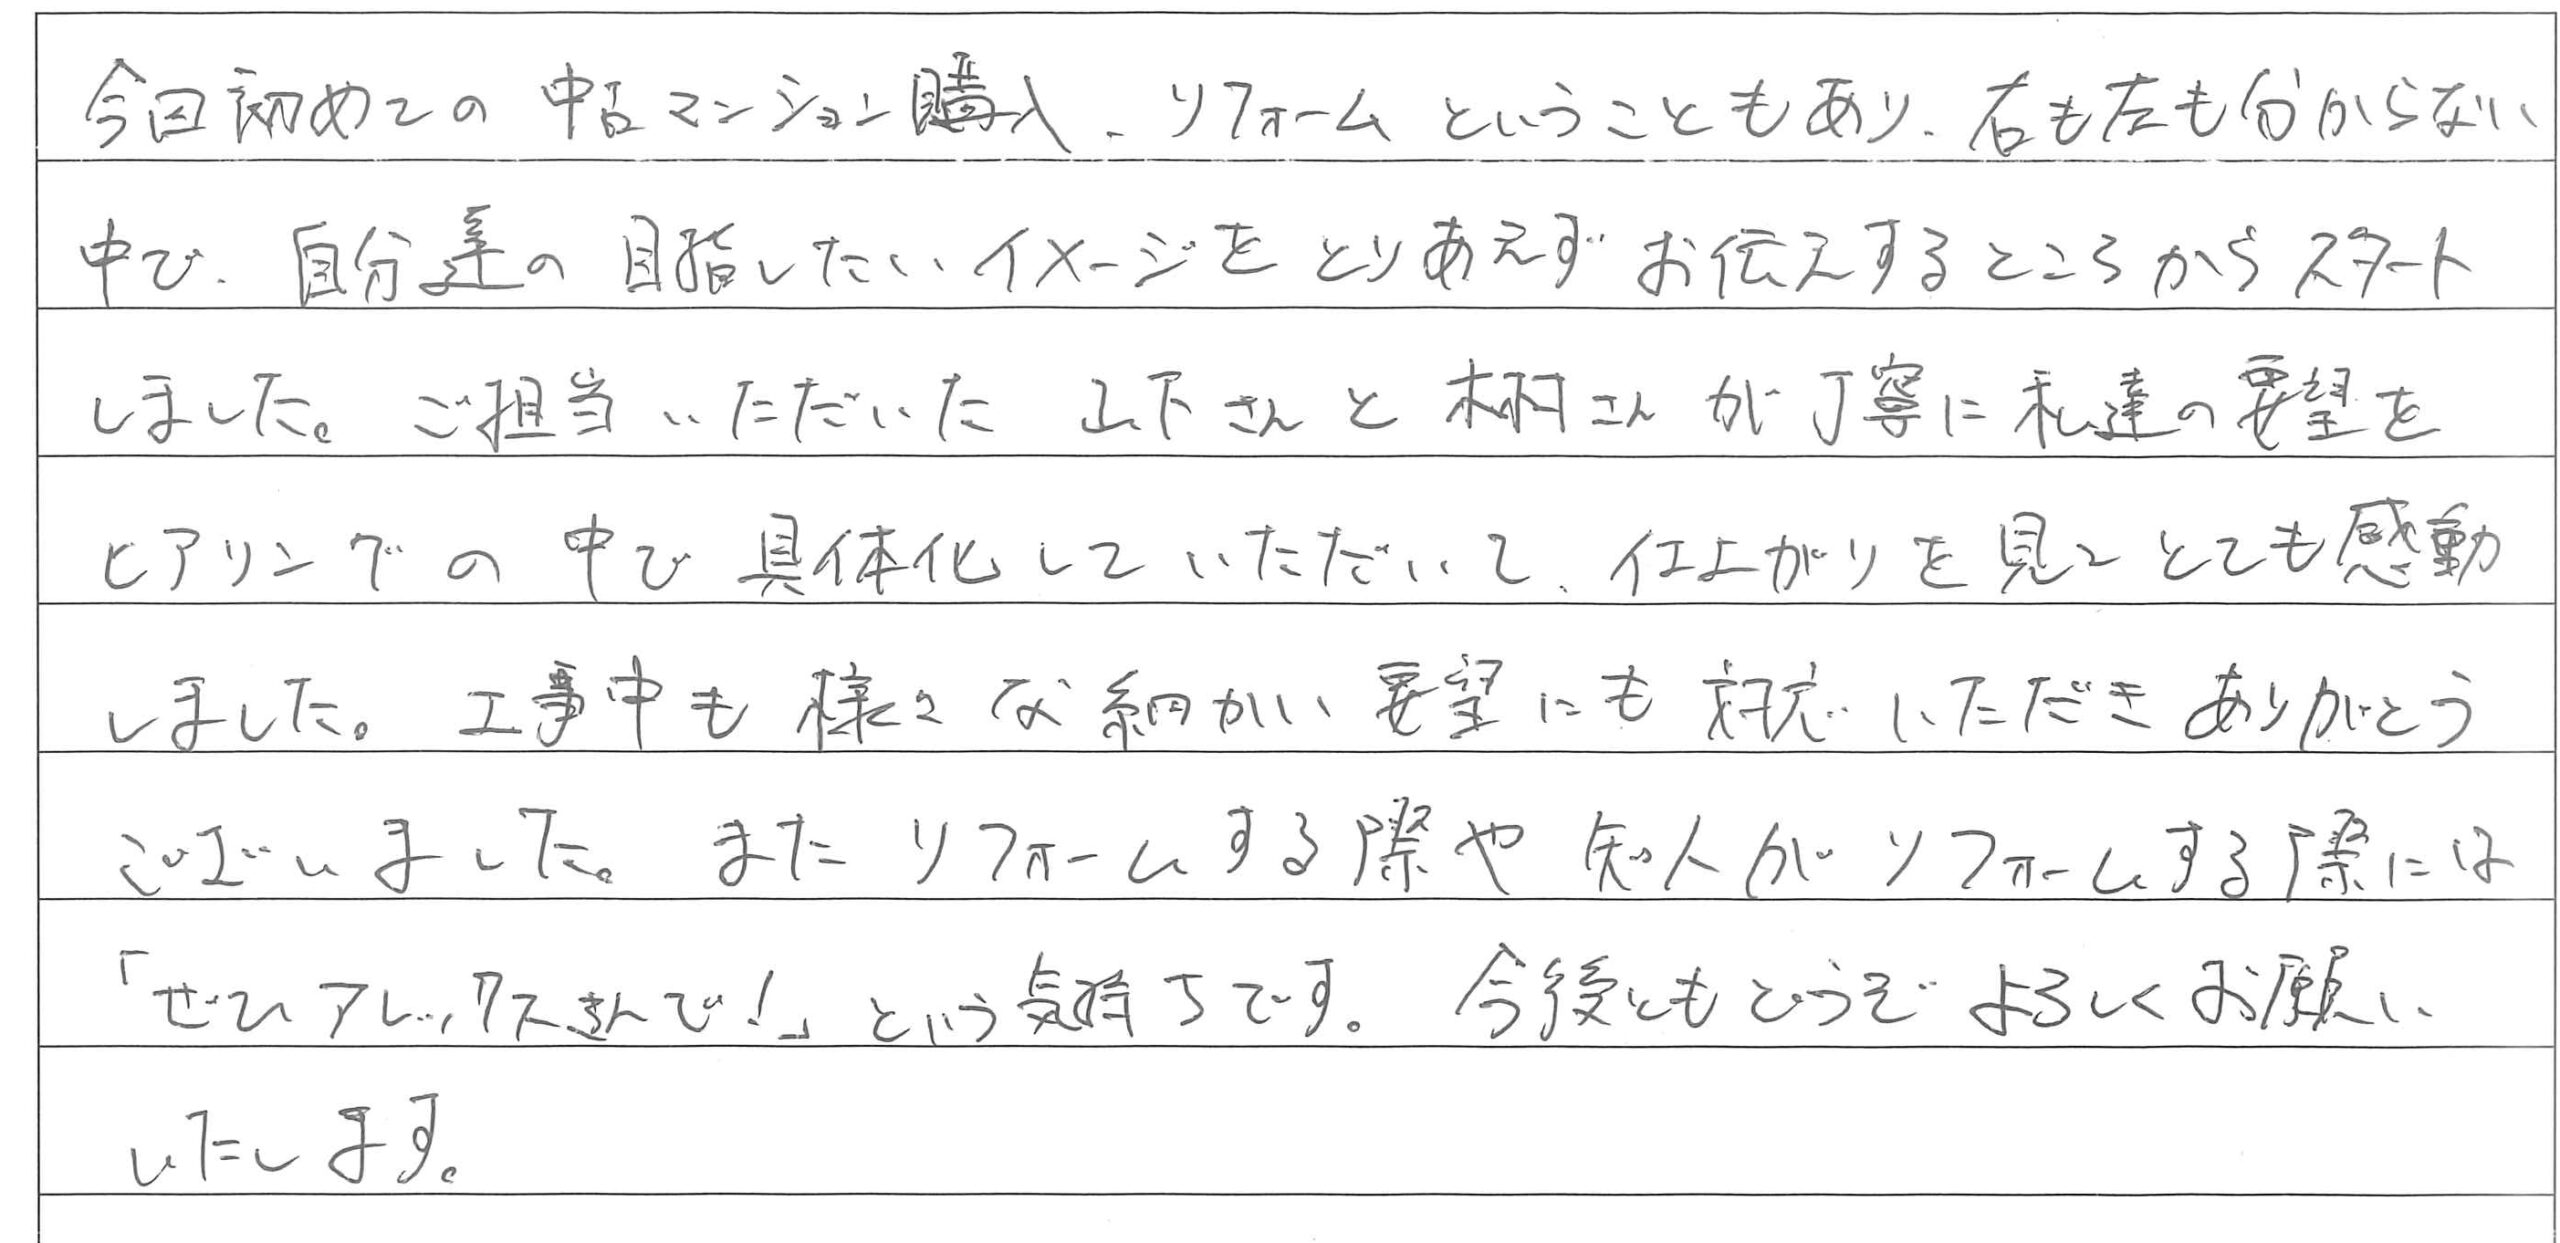 今回初めての中古マンション購入、リフォームということもあり、右も左も分からない
中で、自分達の目指したいイメージをとりあえずお伝えするところからスタート
しました。ご担当いただいた山下さんと木村さんが丁寧に私達の要望を
ヒアリングの中で具体化していただいて、仕上がりを見てとても感動
しました。工事中も様々な細かい要望にも対応いただきありがとう
ございました。またリフォームする際や知人がリフォームする際には
「ぜひアレックスさんで!」という気持ちです。今後ともどうぞよろしくお願い
いたします。